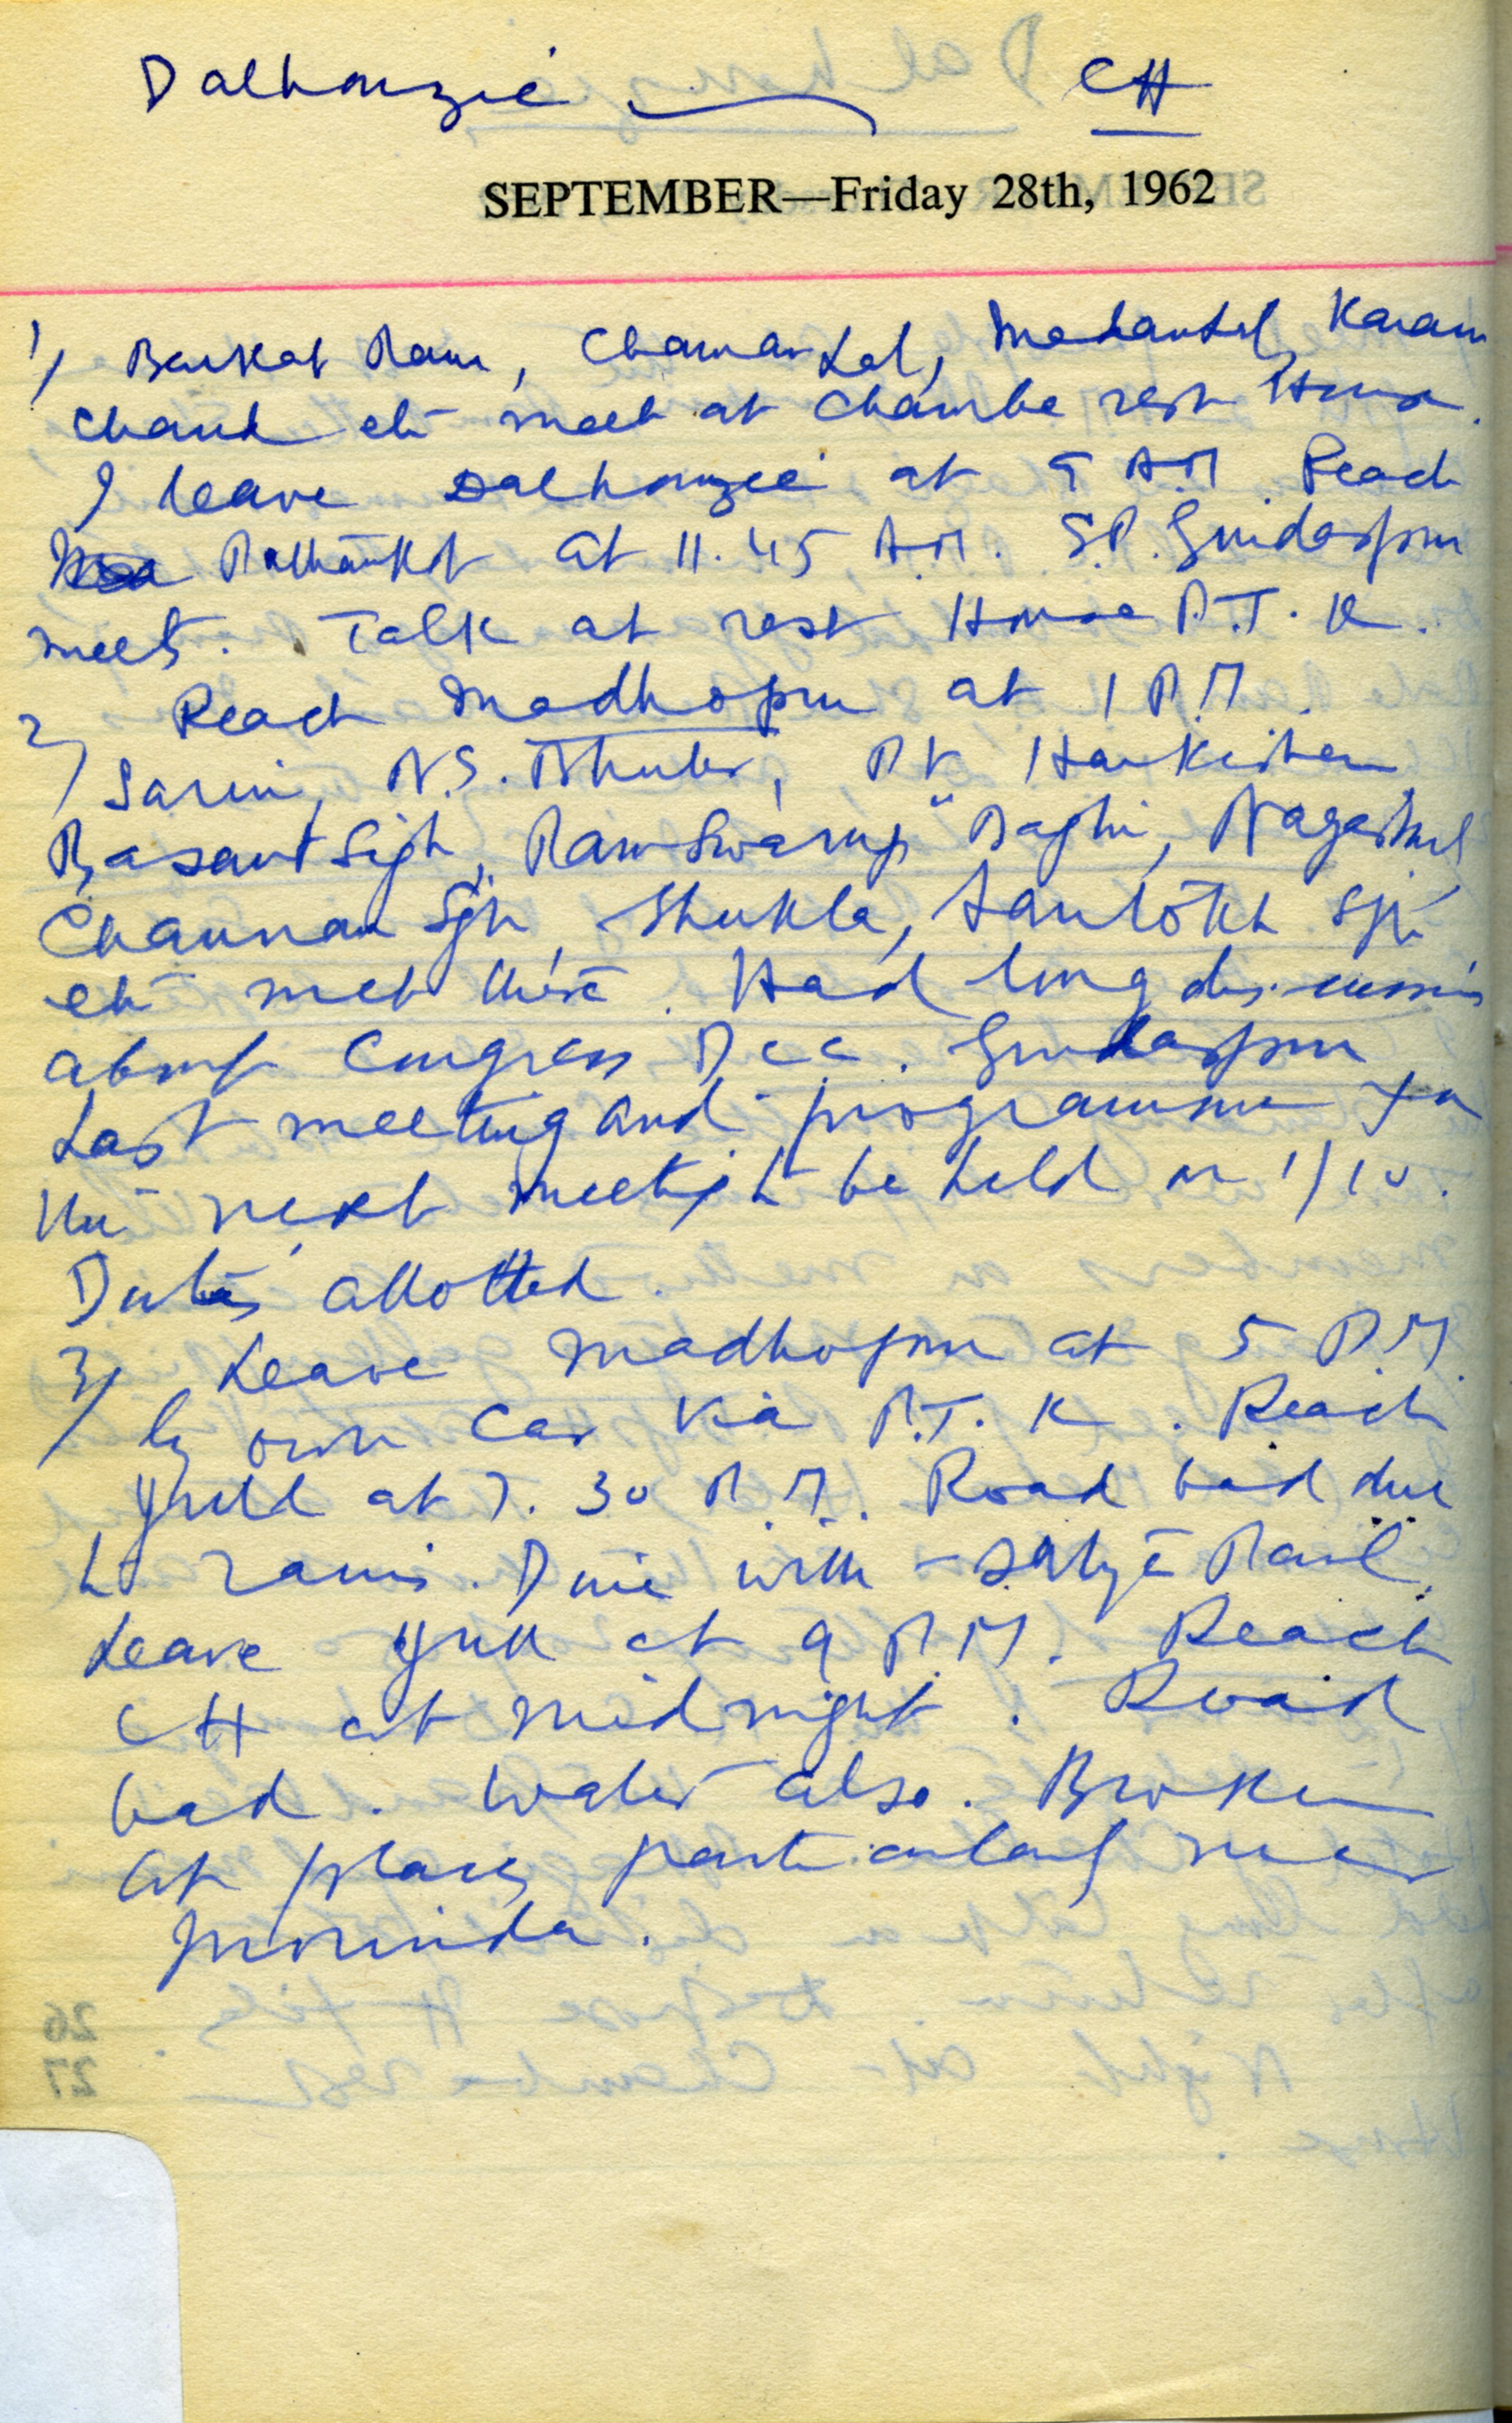 Dalhouzie CH
SEPTEMBER—Friday 28th, 1962
1) Barkat Ram, Chaman Lal, Madan Lal, Karam
Chand etc meet at Chamba rest House.
I leave Dalhouzee at 9 A.M. Reach
Pathankot at 11.45 A.M. S.P. Gurdaspur
meets. Talk at rest House P.T.K.
2) Reach Madhopur at 1 P.M.
Sarin, Pt Harkishan
Basant Sigh, Ram Swarup "Baghi,
Channan Sgh Shukla, Santokh Sgh
etc meet there. Had long discussions
about Congress Dcc. Gurdaspur
Last meeting and programme for
the next meetig to be held on 1/10.
Duties allotted.
3) Leave Madhopur at 5 P.M.
by own Car via P.T.K. Reach
Jull at 7.30 P.M. Road bad due
to rains. Dine with Satya Paul.
Leave Jull at 9 P.M. Reach
CH at midnight. Road
bad. Water also. Broken
at places particularly near
Morinda.
26
27